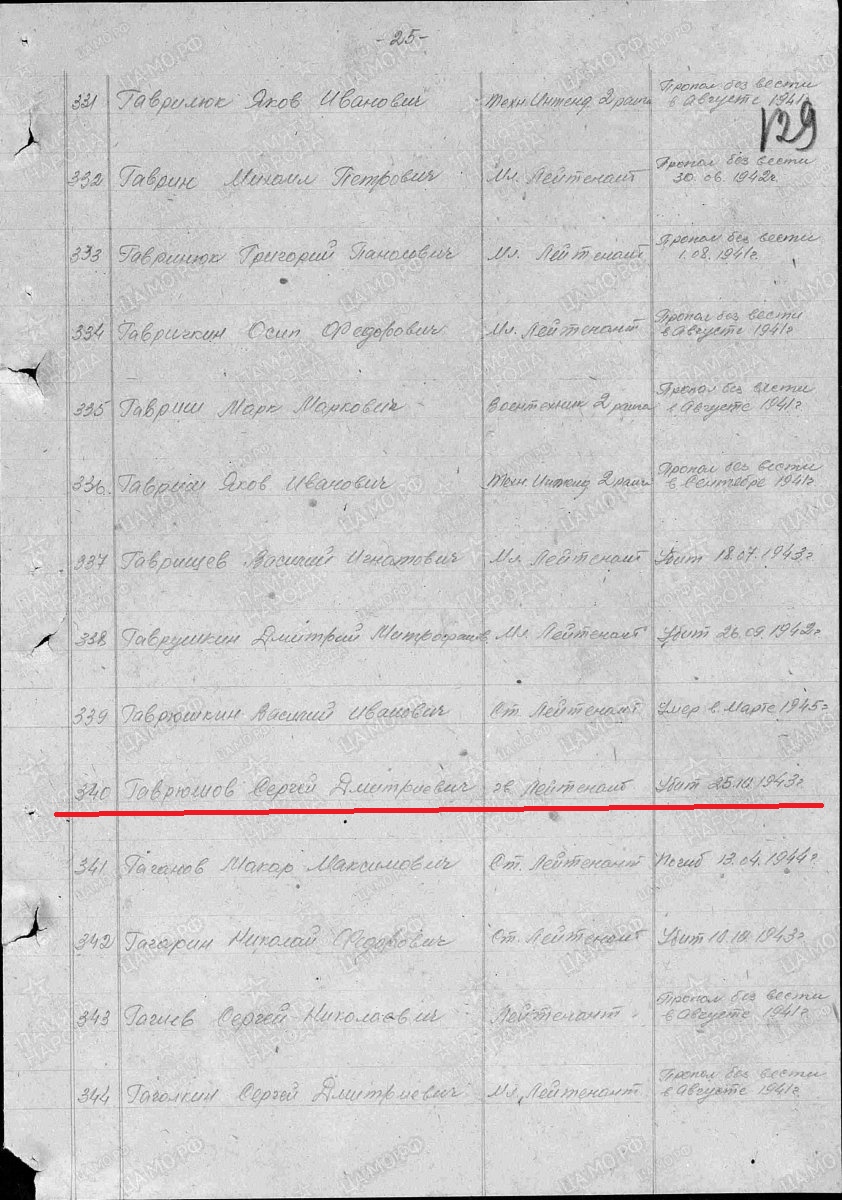 -25-
129
331 Гаврилюк Яков Иванович Техн. Интенд 2 ранга Пропал без вести
в Августе 1941г
332 Гаврин Михаил Петрович Мл. Лейтенант Пропал без вести
30.06.1942г.
333 Гавринюк Григорий Панасович Мл. Лейтенант Пропал без вести
1.08.1941г.
334 Гавричкин Осип Федорович Мл. Лейтенант Пропал без вести
в Августе 1941г
335 Гавриш Марк Маркович Воентехник 2 ранга Пропал без вести
в Августе 1941г
336. Гавриш Яков Иванович Техн. Интенд 2 ранга Пропал без вести
в Сентябре 1941г
337 Гаврищев Василий Игнатович Мл. Лейтенант Убит 18.07.1943г
338 Гаврушкин Дмитрий Митрофанов. Мл. Лейтенант Убит 26.09.1942г
339 Гаврюшкин Василий Иванович Ст. Лейтенант Умер в Марте 1945г
340 Гаврюшов Сергей Дмитриевич гв. Лейтенант Убит 25.10.1943г
341 Гаганов Макар Максимович Ст. Лейтенант Погиб 13.04.1944г
342 Гагарин Николай Федорович Ст. Лейтенант Убит 10.10.1943г
343 Гагиев Сергей Николаевич Лейтенант Пропал без вести
в Августе 1941г
344 Гаголкин Сергей Дмитриевич Мл. Лейтенант Пропал без вести
в Августе 1941г